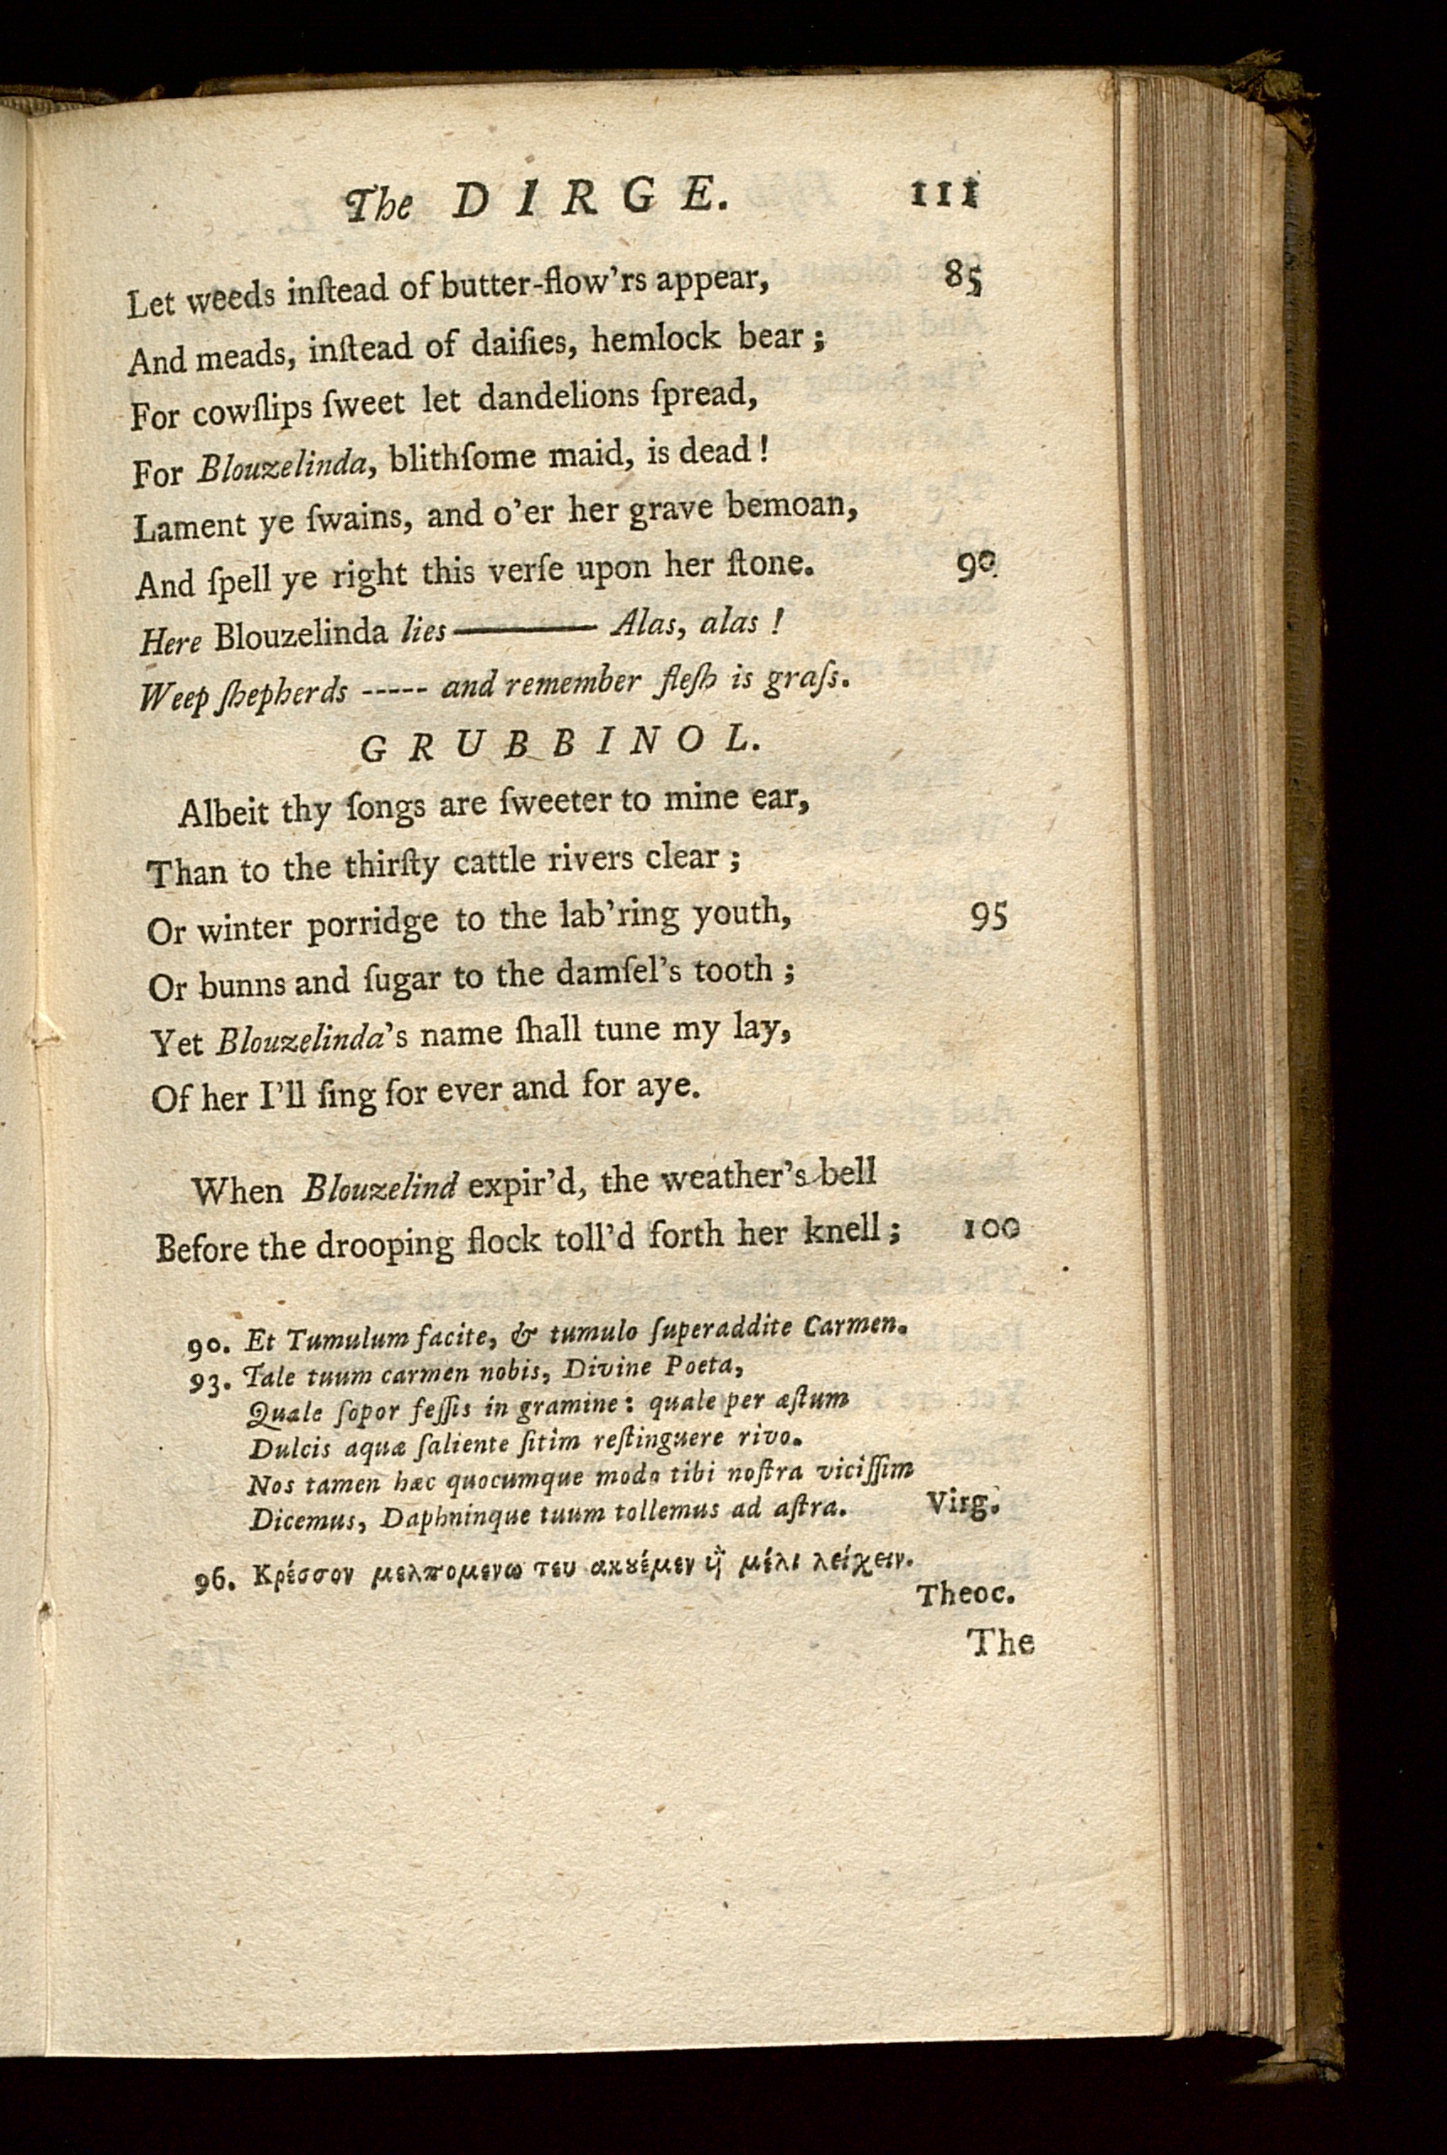 The DIRGE. 111
Let weeds inſtead of butter-flow'rs appear, 85
And meads, inſtead of daiſies, hemlock bear;
For cowſlips ſweet let dandelions ſpread,
For Blouzelinda, blithſome maid, is dead!
Lament ye ſwains, and o'er her grave bemoan,
And ſpell ye right this verſe upon her ſtone. 90
Here Blouzelinda lies——— Alas, alas!
Weep ſhepherds ----- and remember fleſh is graſs.
GRUBBINOL.
Albeit thy ſongs are ſweeter to mine ear,
Than to the thirſty cattle rivers clear;
Or winter porridge to the lab'ring youth, 95
Or bunns and ſugar to the damſel's tooth;
Yet Blouzelinda's name ſhall tune my lay,
Of her I'll ſing for ever and for aye.
When Blouzelind expir'd, the weather's bell
Before the drooping flock toll'd forth her knell; 100
90. Et Tumulum facite, & tumulo ſuperaddite Carmen.
93. Tale tuum carmen nobis, Divine Poeta,
Quale ſopor feſſis in gramine: quale per æſtum
Dulcis aquæ ſaliente ſitim reſtinguere rivo.
Nos tamen hæc quocumque modo tibi noſtra viciſſim
Dicemus, Daphninque tuum tollemus ad aſtra. Virg.
96. Κρέσσον μελπομενω τευ ακȣέμεν ἢ μέλι λείχειν.
Theoc.
The